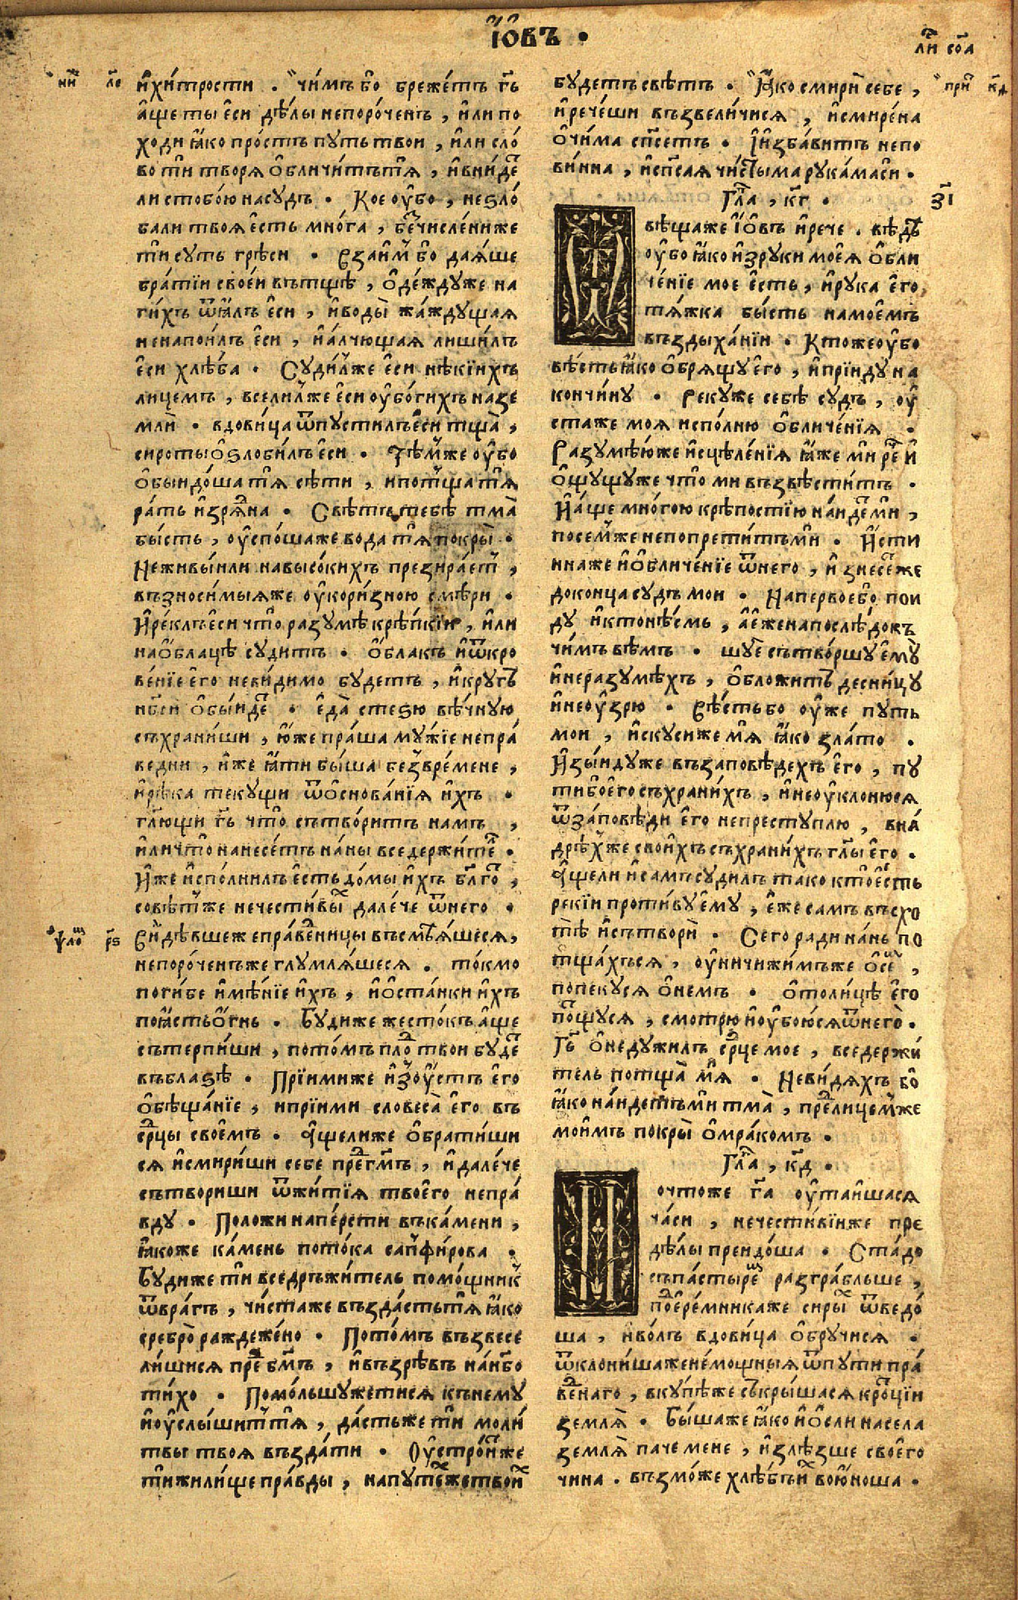 І҆ѡ҆въ •
ли҃ сѻ҃а
ни҃ ле҃
и҆хи́трости . чи́мъ бо бреже́тъ гь҃
а҆́ще ты є҆си́ дѣ́лы непоро́ченъ , и҆́ли по
ходи ꙗ҆́ко про́стъ пу́ть твои , и҆́ли сло́
во ти творѧ ѻ҆бличи́тъ тѧ , и҆ вни́де
ли с тобо́ю на су́дъ . Кое оу҆́бо , не ѕло́
бали твоѧ є҆́сть мно́га , бе́счисле́ни же
ти суть грѣси . Взаи́м бо даѧ́ше
бра́тїи своеи въ тщѣ , ѻ҆де́жду же на
ги́хъ ѿꙗ҆́лъ є҆си , и҆ воды̀ жа́ждущаѧ
не напои́лъ є҆си , и҆ а҆́лчющаѧ лиши́лъ
є҆си хлѣ́ба . Суди́л же є҆си нѣ́кїихъ
лице́мъ , всели́л же є҆си оу҆бо́гихъ на зе
млѝ . вдови́ца ѿпусти́лъ є҆си тща̀ ,
сироты ѻ҆ѕло́билъ є҆си . Тѣ́м же оу҆́бо
ѻ҆быидо́ша тѧ сѣти , и потща тѧ
ра́ть и҆зрѧ́дна . Свѣ́тъ тебѣ̀ тма̀
бысть , оу҆спо́ша же вода тѧ покры̀ .
Не живы́и ли на высо́кихъ презира́етъ ,
възноси́мыѧ же оу҆кори́зною смѣри .
И҆ ре́клъ є҆си что̀ разумѣ крѣ́пкїи , и҆ли
на ѻ҆́блацѣ су́дитъ . ѻ҆́блакъ и҆ ѿкро
ве́нїе его неви́димо бу́детъ , и҆ кру́гъ
нб҃си ѻ҆бы́иде . є҆да̀ стеѕю̀ вѣ́чную
съхрани́ши , ю҆́же пра́ша му́жїе непра́
ведни , и҆́же ꙗ҆́ти бы́ша без вре́мене ,
и҆ рѣ́ка теку́щи ѿ ѻ҆снова́нїѧ и҆́хъ .
гл҃ющи гь҃ что̀ сътвори́тъ на́мъ ,
и҆ли что̀ нанесе́тъ на́ны вседержи́тель .
И҆́же и҆спо́лнилъ є҆сть до́мы и҆́хъ бл҃го ,
совѣ́тъ же нечести́вы дале́че ѿ него .
ѱало҃ рѕ҃
Ви́дѣвше же є праве́дницы въсмѣѧ́шесѧ ,
непоро́ченъ же глумлѧ́шесѧ . то́кмо
поги́бе и҆мѣ́нїе и҆́хъ , и҆ ѻ҆ста́нки и҆́хъ
поꙗ҆́сть ѻ҆́гнь . Бу́ди же жесто́къ а҆́ще
сътерпи́ши , пото́мъ пло́д твои бу́де
въ бла́ѕѣ . Прїими́ же и҆зоу҆́стъ є҆го
ѻ҆бѣща́нїе , и прїими словеса̀ є҆го въ
се́рцы свое́мъ . А҆́ще ли же ѻ҆брати́ши
сѧ и҆ смири́ши себе пре́д гм҃ъ , и҆ дале́че
сътвориши ѿ житїѧ̀ твоегѡ непра́
вду . Положи на пе́рсти въ ка́мени ,
ꙗ҆́коже ка́мень пото́ка сапфи́рова .
Бу́ди же ти вседръжи́тель помо́щникъ
ѿ вра́гъ , чи́ста же възда́сть тѧ ꙗ҆ко
сребро̀ раждеже́но . Пото́мъ възвесе
ли́шисѧ пре́д бг҃мъ , и҆ възрѣвъ на́ нбо
ти́хо . Помо́льшу же тисѧ къ нему
и҆ оу҆слы́шитъ тѧ , да́сть же ти моли́
твы твоѧ възда́ти . Оу҆стро́ит же
ти жили́ще пра́вды , на путе́х же твои́х
бу́детъ свѣ́тъ . Ꙗ҆́ко смири себе ,
и҆ рече́ши възвеличисѧ , и҆ смире́на
ѻ҆чи́ма сп҃сетъ . И҆ и҆зба́витъ непо
ви́нна , и҆ сп҃саѧ чи́стыма рука́ма си .
при҃ кд҃
Гла҃ , кг҃ .
зі҃
Ѿвѣща́ же І҆́ѡвъ и҆ рече . вѣ́дѣ
оу҆бо ꙗ҆ко и҆зруки моеѧ̀ ѻ҆бли
че́нїе мое є҆́сть , и҆ рука є҆го
тѧ́жка бы́сть на мое́мъ
въздыха́нїи . Кто́ же оу҆бо
вѣ́сть ꙗ҆ко ѻ҆брѧщу є҆го , и҆ прїиду на
кончи́ну . Реку́ же себѣ су́дъ , оу҆
ста же моѧ испо́лню ѻ҆бличе́нїѧ .
Разумѣ́ю же и҆сцѣле́нїѧ ꙗ҆́же ми рече́ и҆
ѻ҆щущу же что ми възвѣсти́тъ .
И҆ а҆ще мно́гою крѣ́постїю наи́деми ,
посе́м же не попрети́тъ ми . И҆́сти
нна же и҆ ѻ҆бличе́нїе ѿ него , и҆знесе́ же
до конца су́дъ мои . На первое бо пои
ду и҆ кто́ мѝ нѣсмь , а҆ є҆́же на послѣ́докъ
чи́мъ вѣ́мъ . шуе сътво́ршу є҆му
и҆ неразумѣ́хъ , ѻ҆бложи́тъ десни́цу
и҆ неоу҆́зрю . Вѣ́сть бо оу҆́же пу́ть
мои , и҆скуси́ же мѧ ꙗ҆ко зла́то .
И҆зы́иду же въ за́повѣдехъ є҆го , пу
ти бо є҆го съхрани́хъ , и҆ неоу҆клоню́сѧ
ѿ за́повѣди є҆го непреступлю , в нѧ́
дрѣ́х же свои́хъ съхрани́хъ гл҃ы є҆го .
А҆́ще ли и҆ са́мъ суди́лъ та́ко кто̀ є҆́сть
рекїи проти́ву є҆му , є҆́же са́мъ въсхо
тѣ и҆ сътвори̂ . Сего ра́ди на́нь по
тща́хъсѧ , оу҆ничижи́мъ же ѻ҆ се ,
попеку́сѧ ѻ҆ не́мъ . ѻ҆толи́цѣ є҆го
потщу́сѧ , смотрю̀ и҆ оу҆бою́сѧ ѿ него̀ .
Гь҃ ѻ҆недужи́лъ се́рце мое , вседержи́
тель потща̀ мѧ . Неви́дѧхъ бо
ꙗ҆ко наи́детъ ми тма̀ , пре́дъ лице́м же
мои́мъ покры̀ ѻ҆мра́комъ .
Гла҃ , кд҃ .
Почто́ же га҃ оу҆таи́шасѧ
ча́си , нечести́вїи же пре
дѣ́лы преидо́ша . Ста́до
съ па́стырем разгра́бльше ,
под є҆ре́мника же сиры́х ѿведо́
ша , и҆ во́лъ вдовица ѻ҆бручисѧ .
ѿклони́ша же не́мощныѧ ѿ пути пра́
ве́днаго , вку́пѣ же съкры́шасѧ кро́тцїи
земли̂ . Бы́ша же ꙗ҆́ко и҆ ѻ҆сли на села
земли̂ паче мене , и҆злѣ́зше своего
чина . възмо́же хлѣ́бъ и҆ во ю҆́ноша .